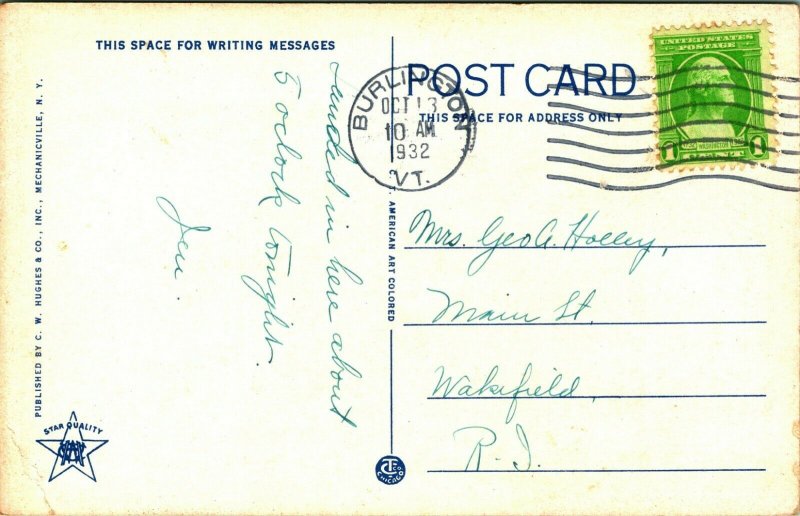 THIS SPACE FOR WRITING MESSAGES
Landed in here about
5 oclock tonight.
Jen.
PUBLISHED BY C. W. HUGHES & CO., INC., MECHANICVILLE, N. Y.
STAR QUALITY
C. T. AMERICAN ART COLORED
CT CO
CHICAGO
POST CARD
THIS SPACE FOR ADDRESS ONLY
BURLINGTON
OCT 13
10 AM
1932
VT.
UNITED STATES
POSTAGE
1 1
Mrs. Geo A. Holley,
Main St.
Wakefield,
R. I.